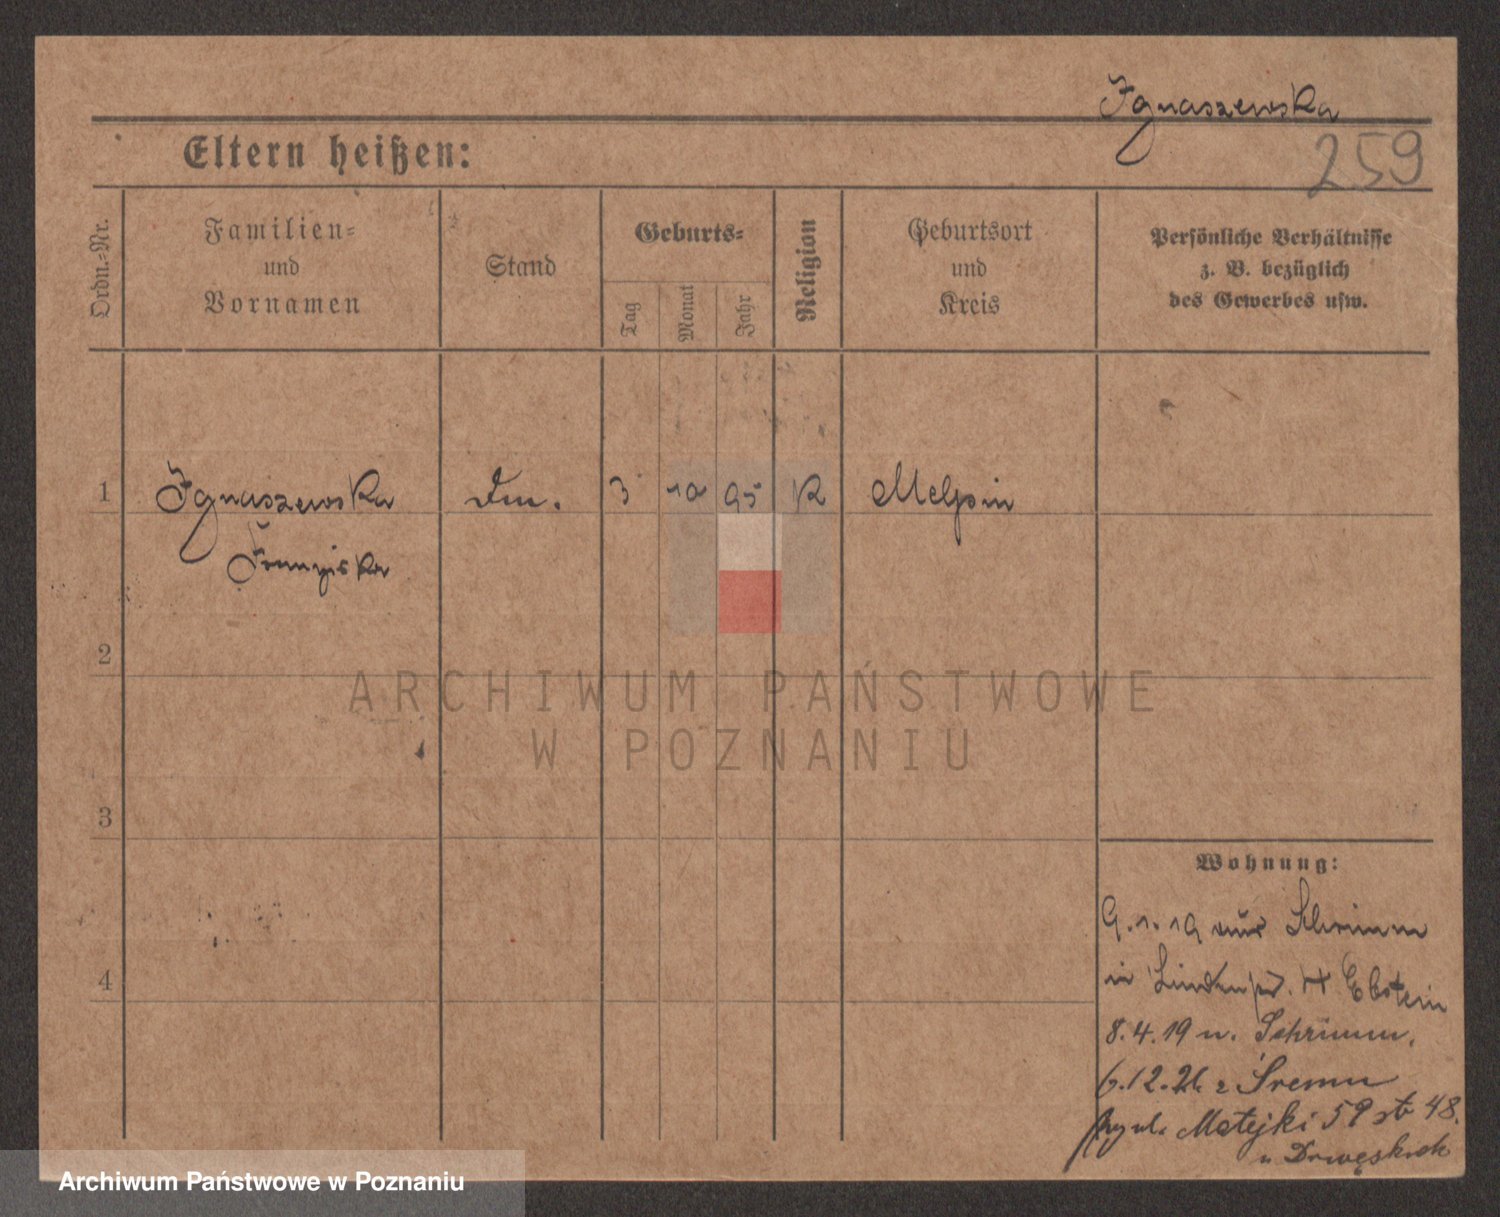 Ignaszewska
259
Eltern heißen:
Ordn.-Nr.
Familien-
und
Vornamen
Stand
Geburts-
Tag
Monat
Jahr
Religion
Geburtsort
und
Kreis
Persönliche Verhältnisse
z. B. bezüglich
des Gewerbes usw.
1 Ignaszewska 3 10 95 K Melpin
Franziska
2
ARCHIWUM PAŃSTWOWE
W POZNANIU
3
Wohnung:
9.1.19 aus Schrimm
in b/ Ebstein
8.4.19 n. Schrimm.
6.12.21. z Śremu
przy ul. Matejki 59 48.
u Drwęskich
4
Archiwum Państwowe w Poznaniu